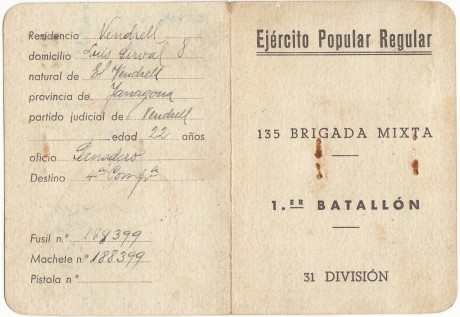 Residencia Vendrell
domicilio Luis Sirval 8
natural de El Vendrell
provincia de Tarragona
partido judicial de Vendrell
edad 22 años
oficio
Destino 4ª Compª
Fusil n.° 188399
Machete n.° 188399
Pistola n.°
Ejército Popular Regular
135 BRIGADA MIXTA
1.ER BATALLÓN
31 DIVISIÓN